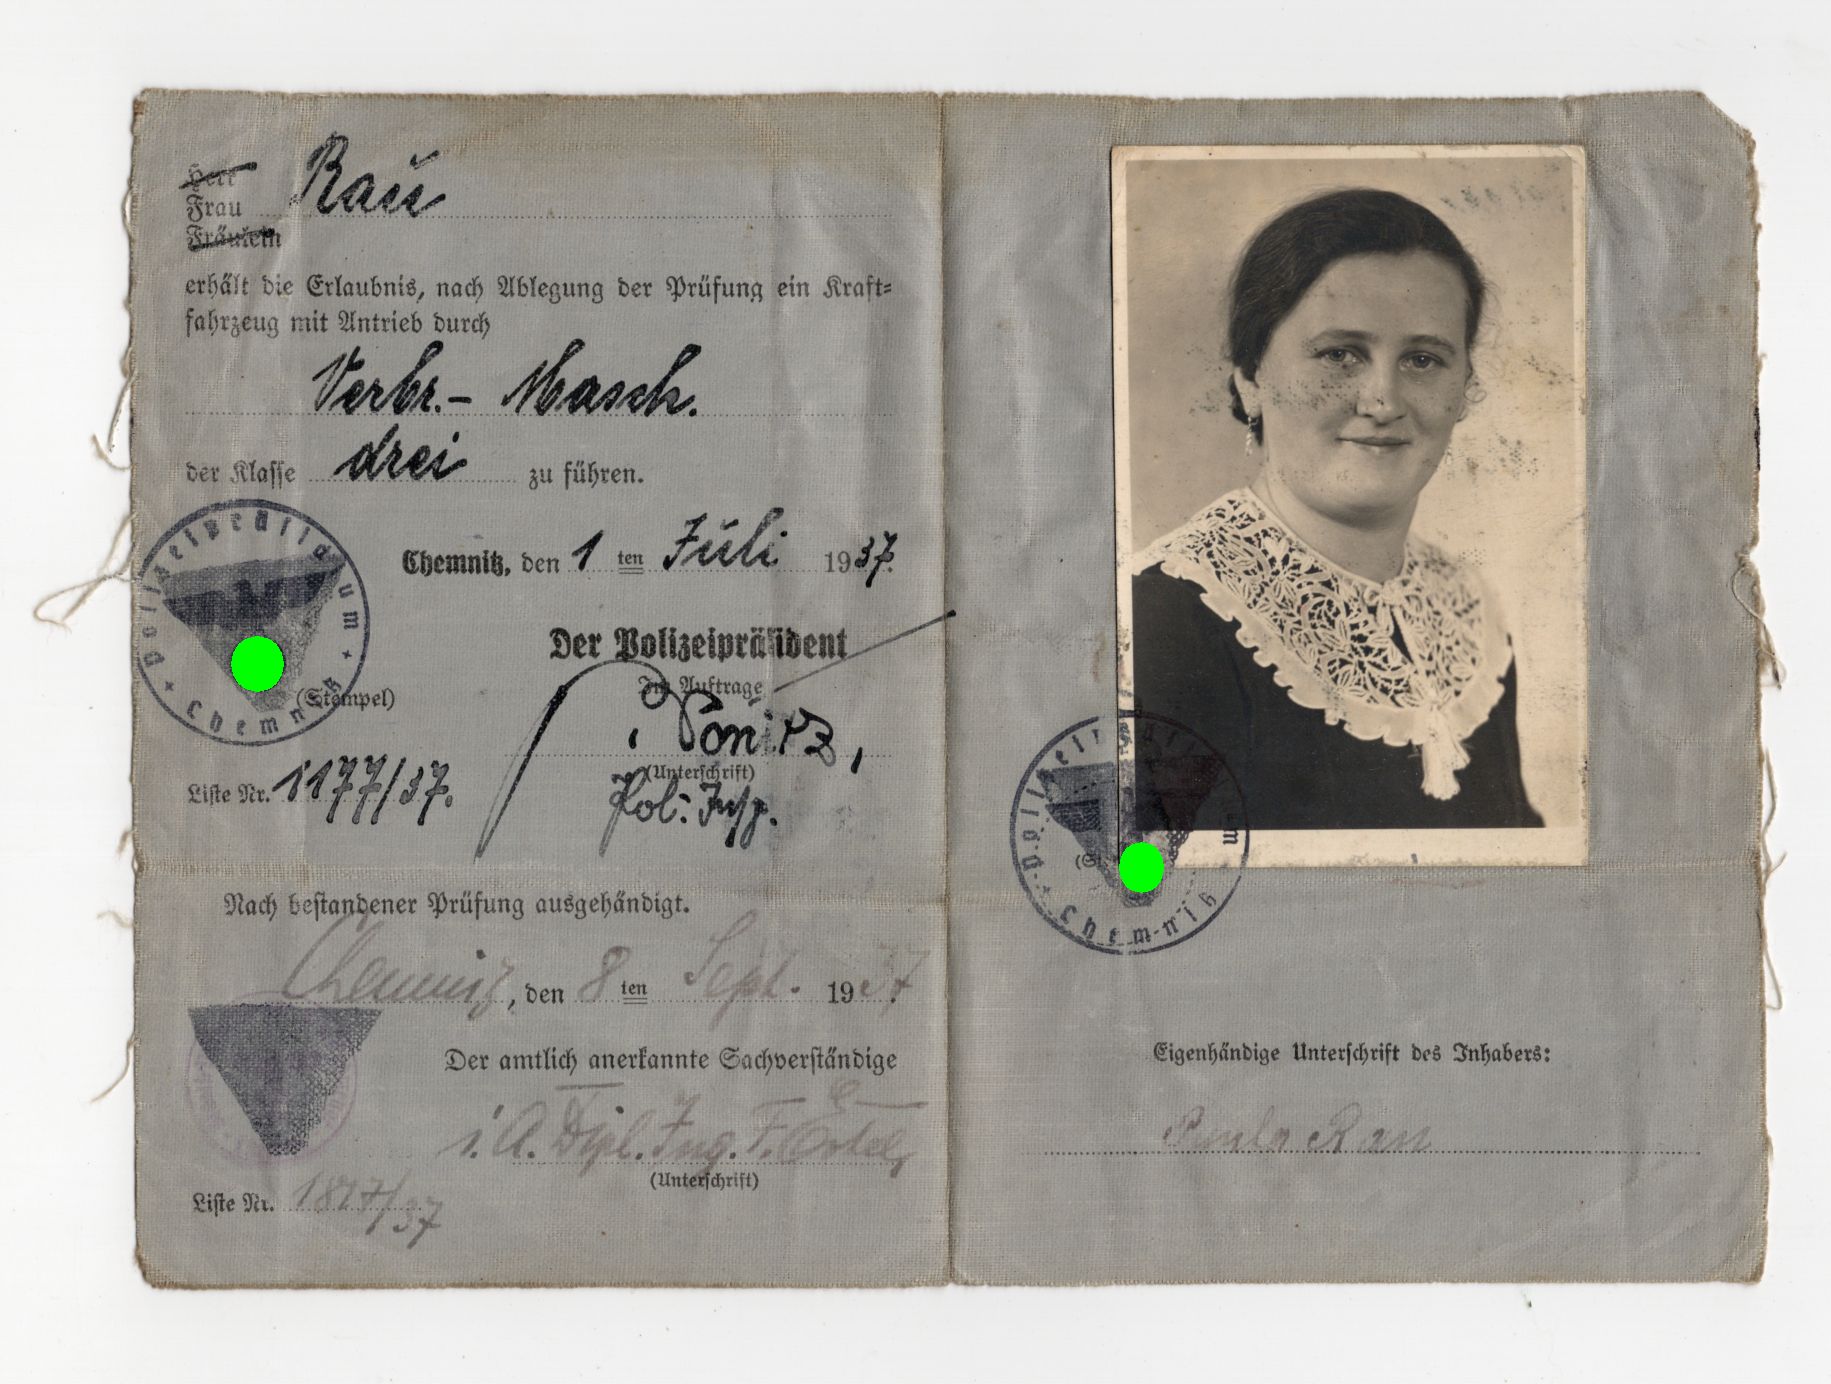 Herr
Frau Rau
Fräulein
erhält die Erlaubnis, nach Ablegung der Prüfung ein Kraft=
fahrzeug mit Antrieb durch
Verbr.- Masch.
der Klasse drei zu führen.
Polizeipräsidium Chemnitz
Chemnitz, den 1 ten Juli 1937.
Der Polizeipräsident
Im Auftrage
(Stempel)
(Unterschrift)
Liste Nr. 1177/37.
Pol. Insp.
Nach bestandener Prüfung ausgehändigt.
Chemnitz, den 8 ten Sept. 1937.
Der amtlich anerkannte Sachverständige
i. A. Dipl. Ing. F.
(Unterschrift)
Liste Nr. 1817/37
Polizeipräsidium Chemnitz
Eigenhändige Unterschrift des Inhabers:
Paula Rau